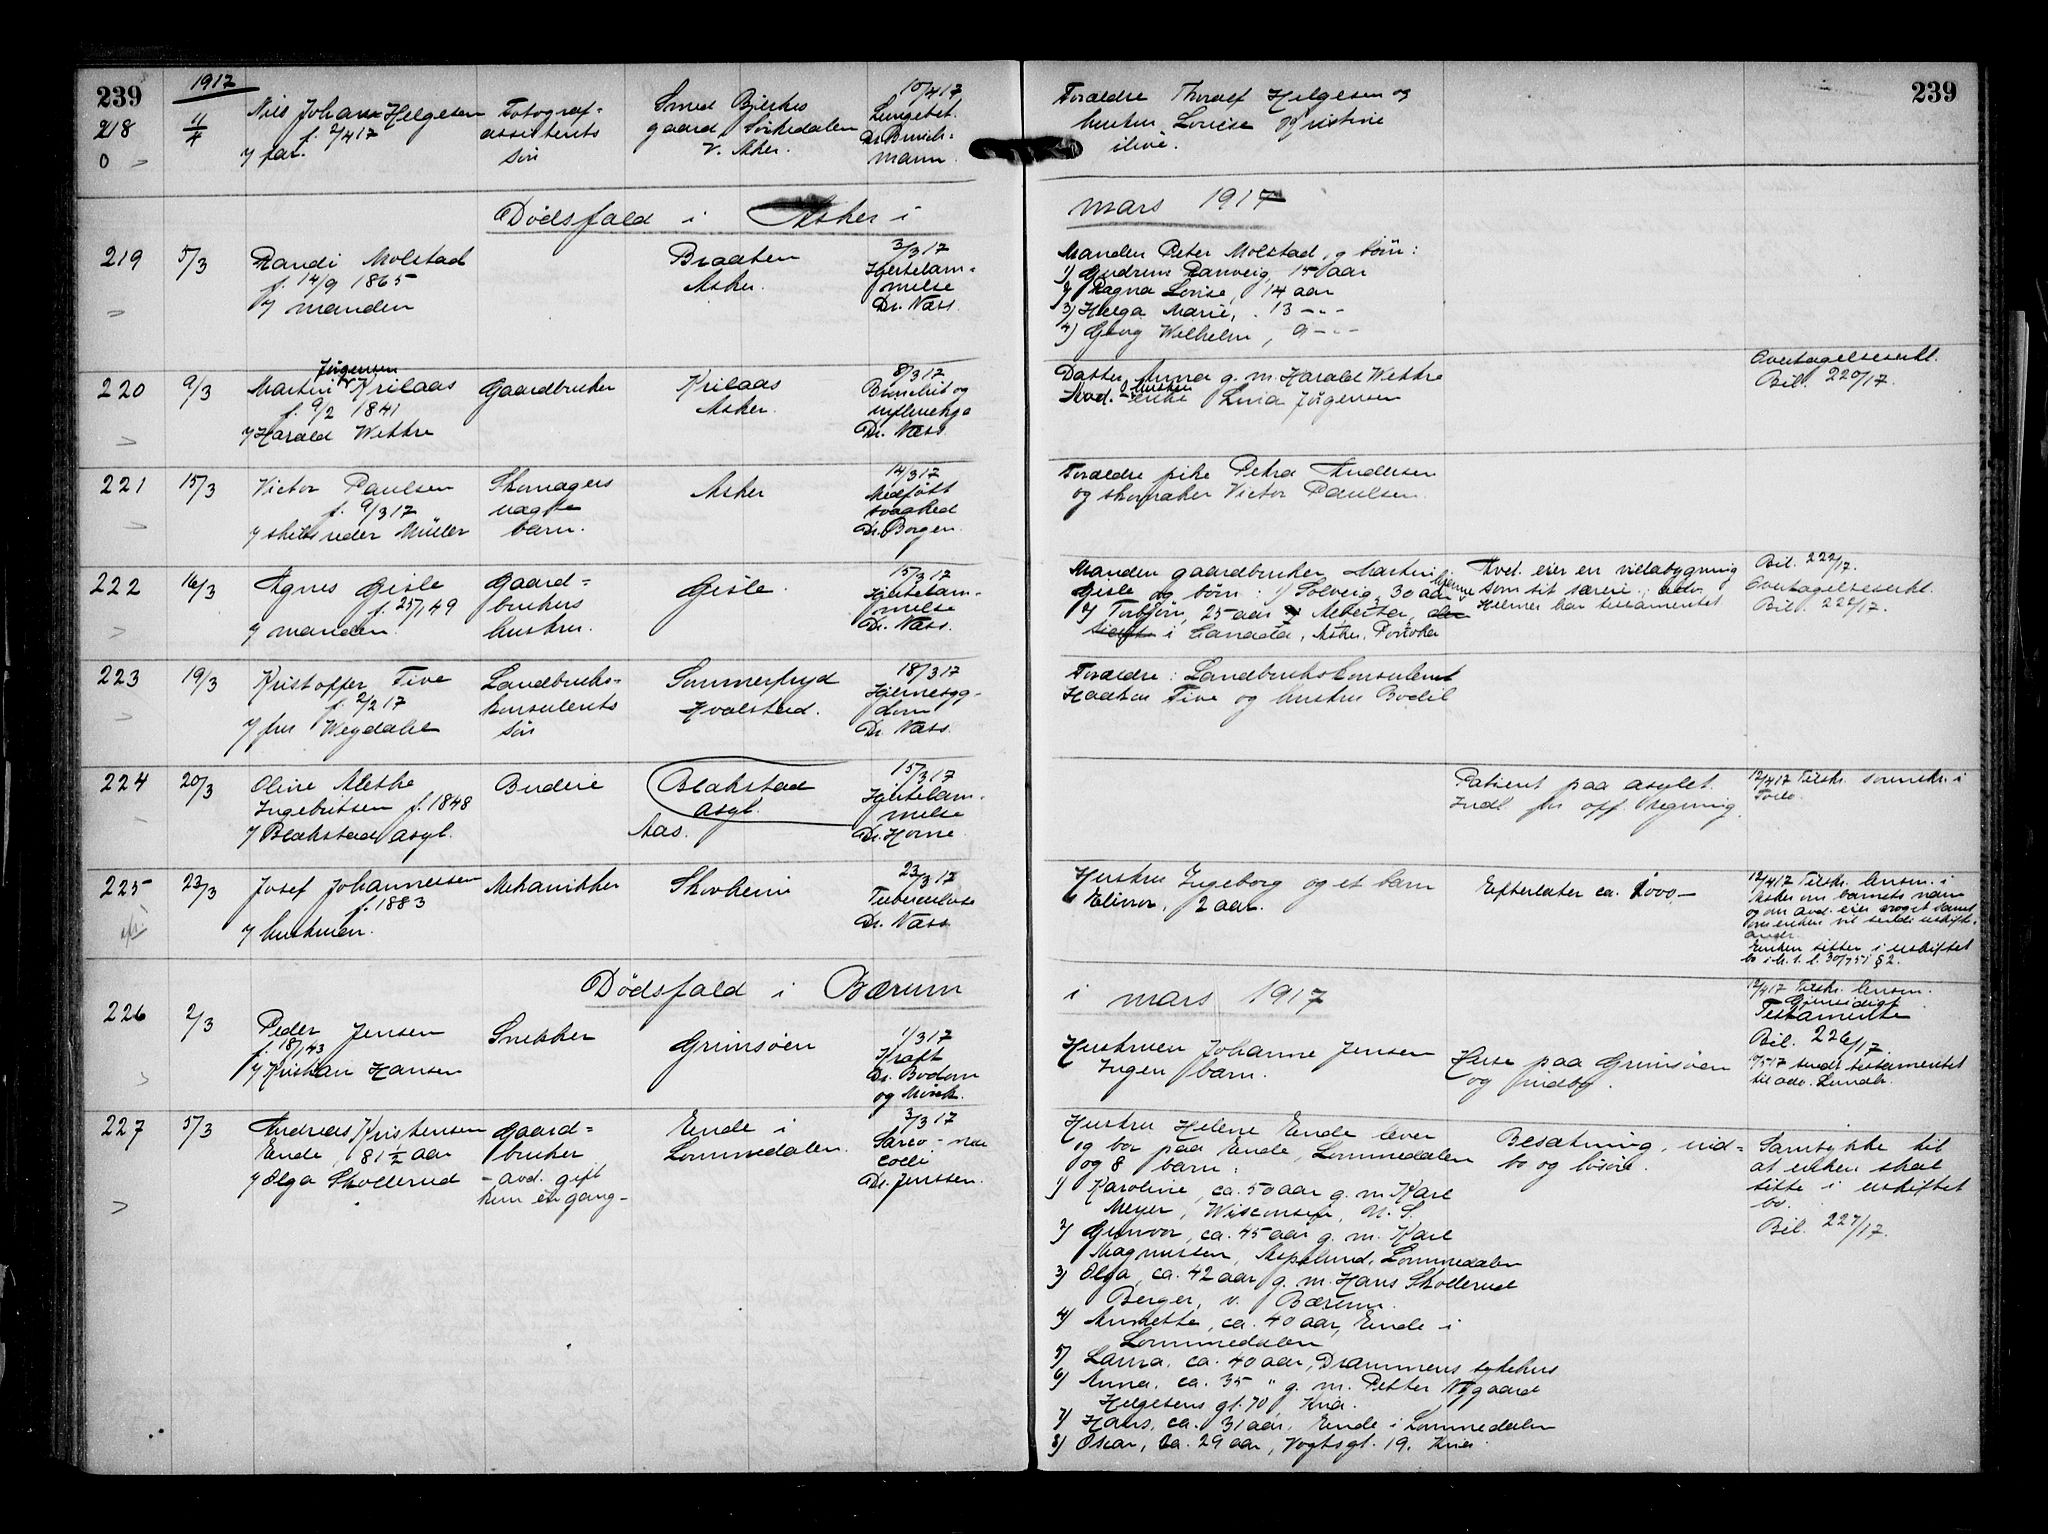 239
239
1917
218
11/4
Nils Johan Helgesen
f. 2/4 17
/ far.
Fotograf-
assistents
søn
Smed Bjerkes
gaard Sørkedalen
V. Aker.
10/4 17
Lungebet.
mann
Forældre Thoralf Helgesen og
hustru Lovise Kristine
ilive.
0
Dødsfald i Asker i
mars 1917
219
5/3
Randi Molstad
f. 14/9 1865
/ manden
Braaten
Asker.
3/3 17
Hjertelam-
melse
Dr. Næss.
Manden Peter Molstad og børn:
1) Gudrun Ranveig, 15 aar
2) Ragna Lovise, 14 aar
3) Helga Marie, 13 -"-
4) Georg Wilhelm, 9 -"-
220
9/3
Jørgensen
Martin Krilaas
f. 9/2 1841
/ Harald Wettre
Gaardbruker
Krilaas
Asker.
8/3 17
Bronchit og
influenza
Dr. Næss.
Datter Anna g. m. Harald Wettre
hustru
enke Lina Jørgensen
Overtagelseserkl.
Bil. 220/17.
221
15/3
Victor Paulsen
f. 9/3 17
Müller
Skomagers
uægte
barn.
Asker
14/3 17
Medfødt
svaghed
Dr. Borgen.
Forældre pike Petra Andersen
og skomaker Victor Paulsen.
222
16/3
Agnes Gisle
f. 25/1 49
/ manden.
Gaard-
brukers
hustru.
Gisle.
15/3 17
Hjertelam-
melse
Dr. Næss.
Manden gaardbruker Martin
Gisle og børn: 1) Solveig, 30 aar hjemme
2) Torbjørn, 25 aar, Alberta,
i Canada, Asker,
Avd. eier en villabygning
som sit særeie; adv.
Hiemer har testamentet
Bil. 222/17.
Overtagelseserkl.
Bil. 222/17.
223
19/3
Kristoffer Five
f. 2/2 17
/ fru Weydahl
Landbruks-
konsulents
søn
Sommerfryd
Hvalstad.
18/3 17
Hjernesyg-
dom
Dr. Næss.
Forældre: Landbrukskonsulent
Haakon Five og hustru Bodil
224
20/3
Oline Alethe
Ingebritsen f. 1848
/ Blakstad asyl.
Budeie
Blakstad
asyl.
Aas.
15/3 17
Hjertelam-
melse
Dr. Horne
Patient paa asylet.
Indl. for off. regning.
12/4 17 Tilskr. sorensk. i
225
23/3
Josef Johannessen
f. 1883
/ hustruen.
Mekanikker
Skovheim
23/3 17
Tuberculose
Dr. Næss
Hustru Ingeborg og et barn
Elinor, 2 aar.
Efterlater ca. 1000,-
12/4 17 Tilskr. lensm. i
Asker om barnets navn
og om avd. eier noget samt
om enken vil sitte i uskift.
Enken sitter i uskiftet
bo i h. t. l. 30/7 51 § 2.
Dødsfald i Bærum
i mars 1917
226
2/3
Peder Jensen
f. 18/1 43
/ Kristian Hansen
Snekker
Grimsøen
1/3 17
Kræft
Dr. Bodom
og Mörch.
Hustruen Johanne Jensen
Ingen barn.
Huse paa Grimsøen
og indbo.
12/4 17 Tilskr. lensm.
Gjensidigt
Testamente
Bil. 226/17.
sendt testamentet
til adv. Lundh.
227
5/3
Andreas Kristensen
Ende, 81 1/2 aar
/ Olga Skollerud
Gaard-
bruker
- avd. gift
kun én gang -
Ende i
Lommedalen.
3/3 17
Sarco-ma
coli
Dr. Jenssen.
Hustru Helene Ende lever
og bor paa Ende, Lommedalen
og 8 barn:
1) Karoline, ca. 50 aar g. m. Karl
Meyer, Wisconsin, U. S.
2) Gunvor, ca. 45 aar g. m. Karl
Magnussen, Asplund, Lommedalen
3) Olga, ca. 42 aar g. m. Hans Skollerud
Berger, v. Bærum.
4) Annette, ca. 40 aar, Ende i
Lommedalen
5) Laura, ca. 40 aar, Drammens sykehus
6) Anna, ca. 35 " g. m. Petter Nygaard
Helgesens gt. 70, Kria.
7) Hans, ca. 31 aar, Ende i Lommedalen
8) Oscar, ca. 29 aar, Vogtsgt. 19, Kria.
Besætning, ind-
bo og løsøre.
Samtykke til
at enken skal
sitte i uskiftet
bo.
Bil. 227/17.